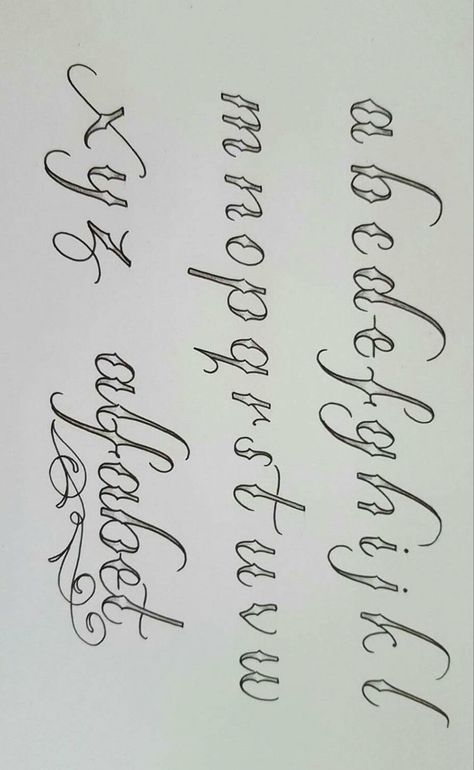 a b c d e f g h i j k l
m n o p q r s t u v w
x y z alfabet